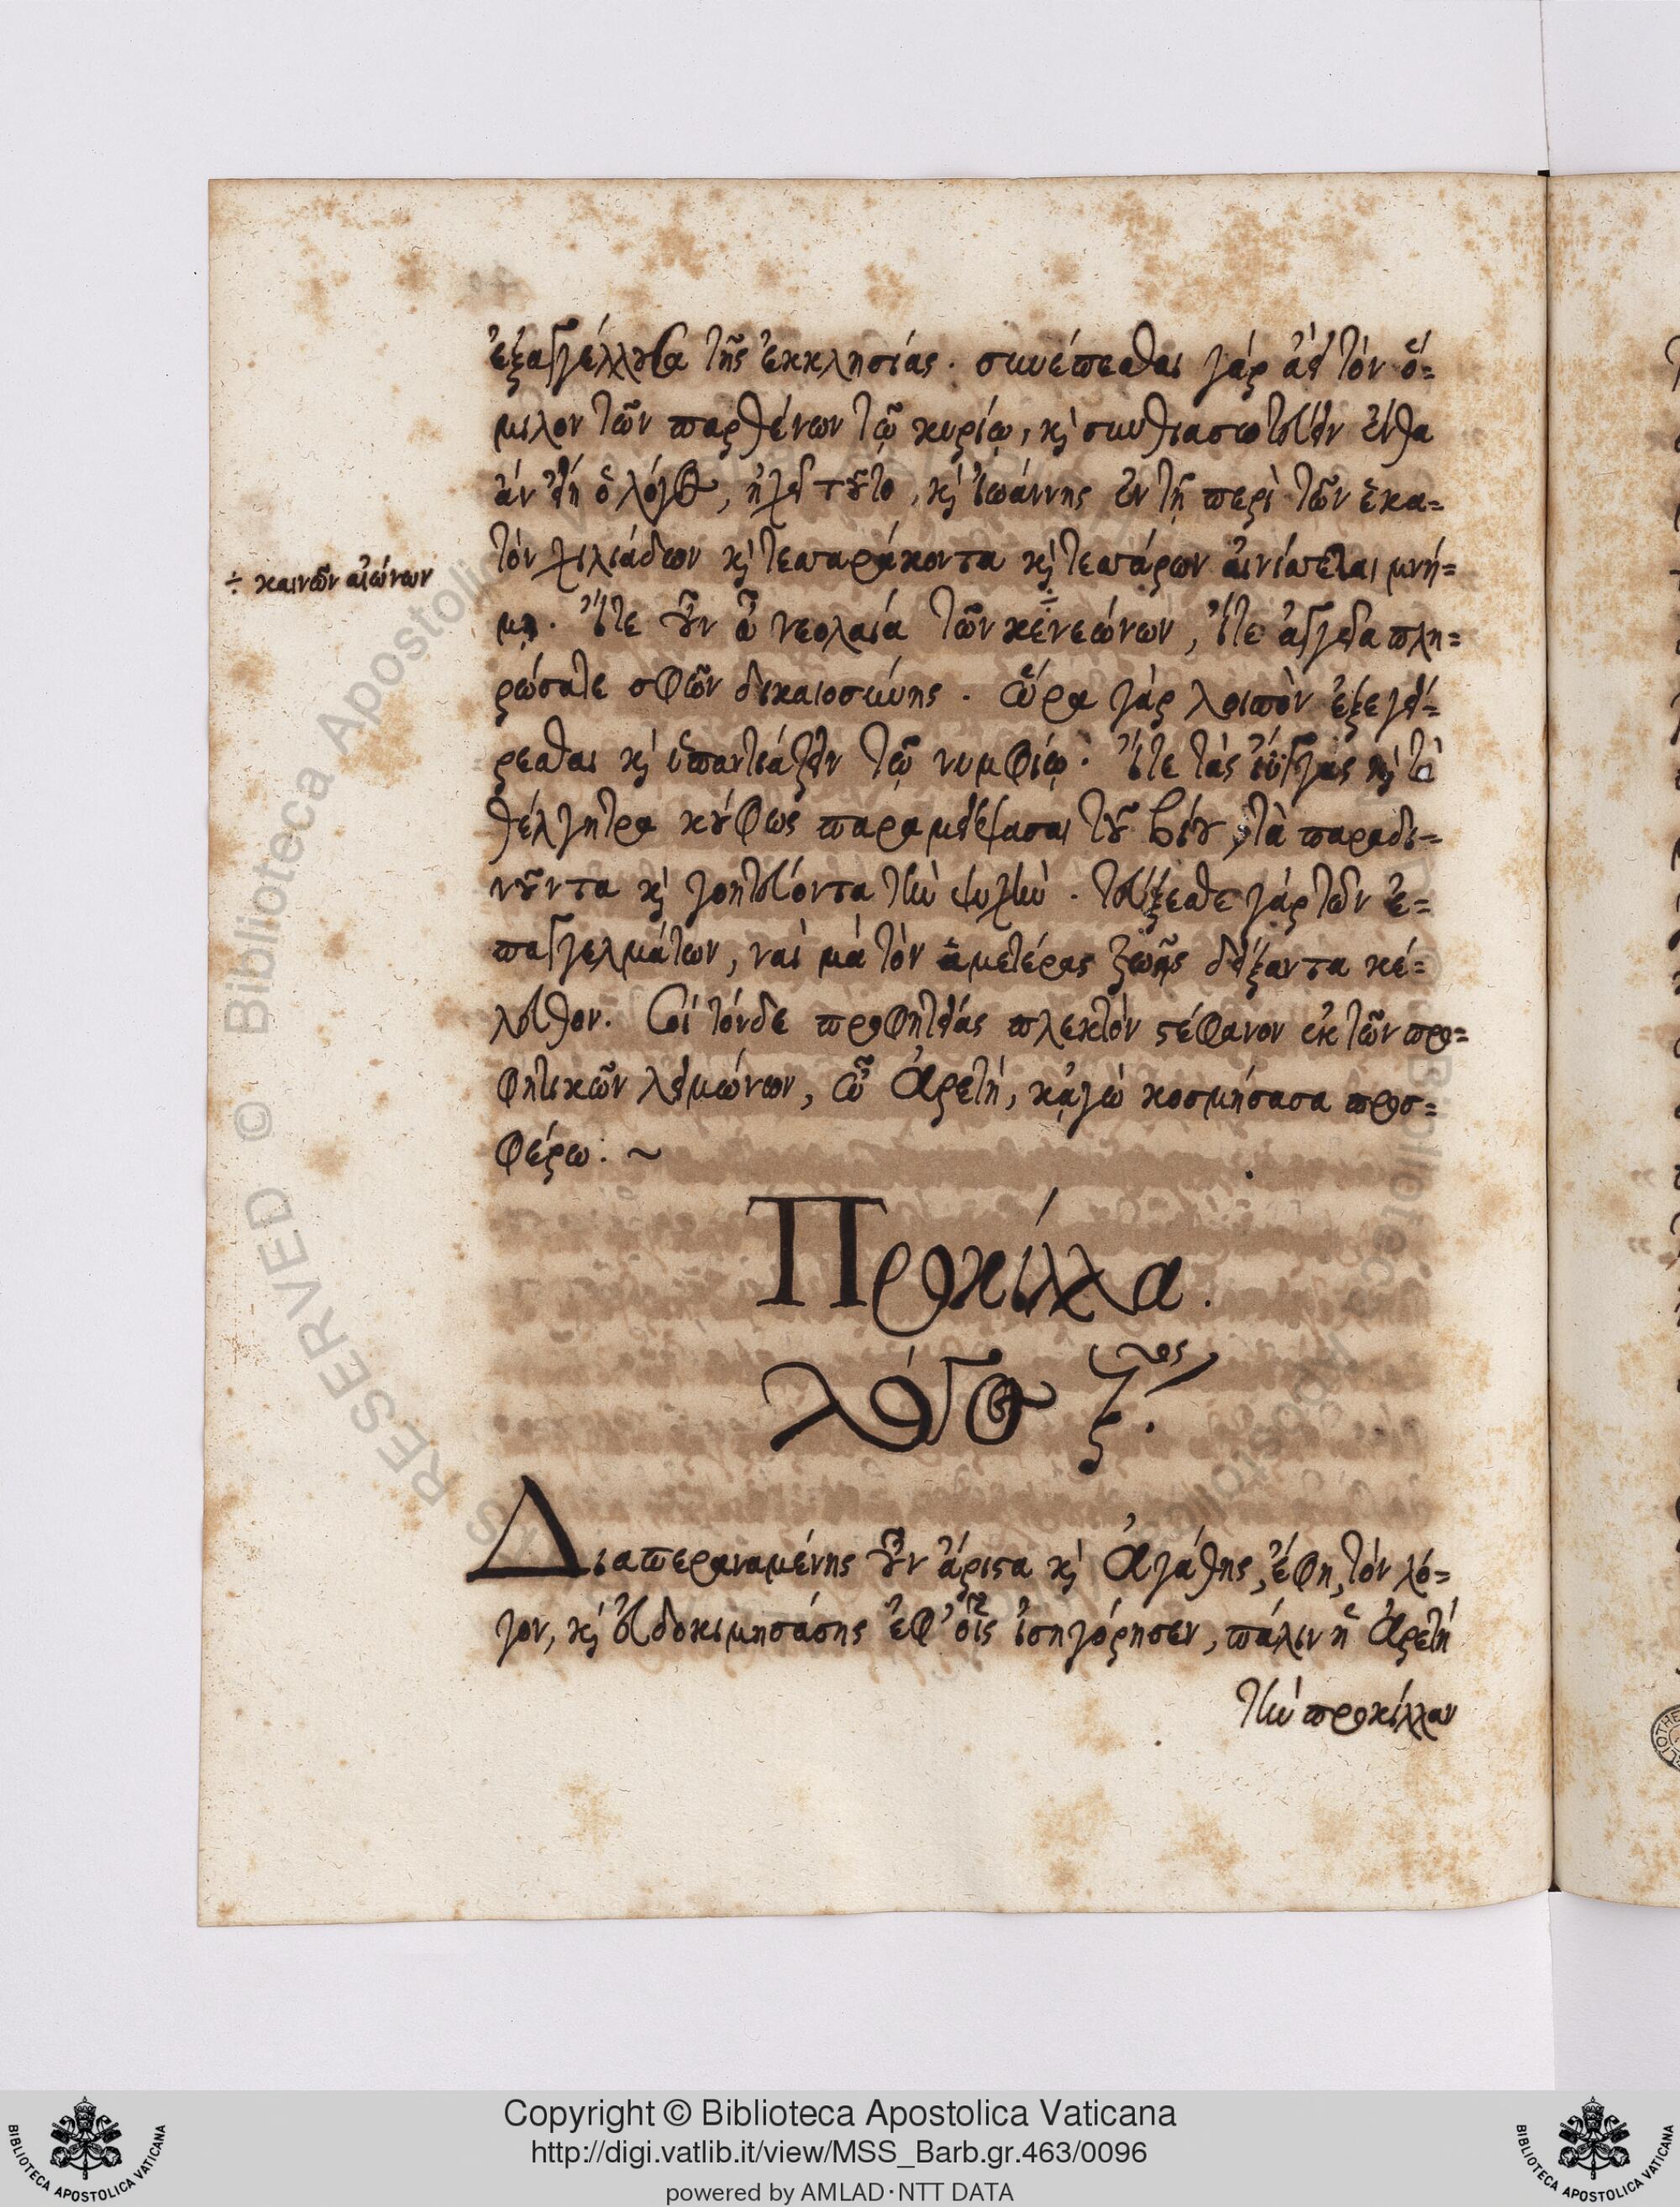 ἐξαγγέλλουσα τῆς ἐκκλησίας. συνέπεσθαι γάρ ἀεὶ τόν ὅ=
μιλον τῶν παρθένων τῷ κυρίῳ, κὶ συνθιασωτεύειν ἔνθα
ἄν εἴη ὁ λόγος, ἠχεῖ τοῦτο, κὶ ἰωάννης ἐν τῇ περὶ τῶν ἑκα=
τόν χιλιάδων κὶ τεσσαράκοντα κὶ τεσσάρων αἰνίσσεται μνή=
÷ καινῶν αἰώνων
μῃ. ἴτε οὖν ὦ νεολαία τῶν κενεώνων, ἴτε ἄγγεα πλη=
ρώσατε σφῶν δικαιοσύνης. ὥρα γάρ λοιπὸν ἐξεγεί=
ρεσθαι κὶ ὑπαντιάζειν τῷ νυμφίῳ. ἴτε τάς ἴυγγας κὶ τὰ
θέλγητρα κούφως παραμείψασαι τοῦ βίου, τὰ παραδι=
νοῦντα κὶ γοητεύοντα τὴν ψυχὴν. τεύξεσθε γάρ τῶν ἐ=
παγγελμάτων, ναὶ μά τόν ἁμετέρας ζωῆς δείξαντα κέ=
λευθον. Σοί τόνδε προφητείας πλεκτόν στέφανον ἐκ τῶν προ=
φητικῶν λειμώνων, ὦ Ἀρετή, κἀγὼ κοσμήσασα προσ=
φέρω: ~
Προκίλλα.
λόγος ζ.ος
Διαπεραναμένης οὖν ἄριστα κὶ Ἀγάθης, ἔφη, τόν λό=
γον, κὶ εὐδοκιμησάσης ἐφ' οἷς ἰσηγόρησεν, πάλιν ἡ Ἀρετή
τὴν προκίλλαν
RESERVED © Biblioteca Apostolica
Copyright © Biblioteca Apostolica Vaticana
http://digi.vatlib.it/view/MSS_Barb.gr.463/0096
powered by AMLAD·NTT DATA
BIBLIOTECA APOSTOLICA VATICANA
BIBLIOTECA APOSTOLICA VATICANA